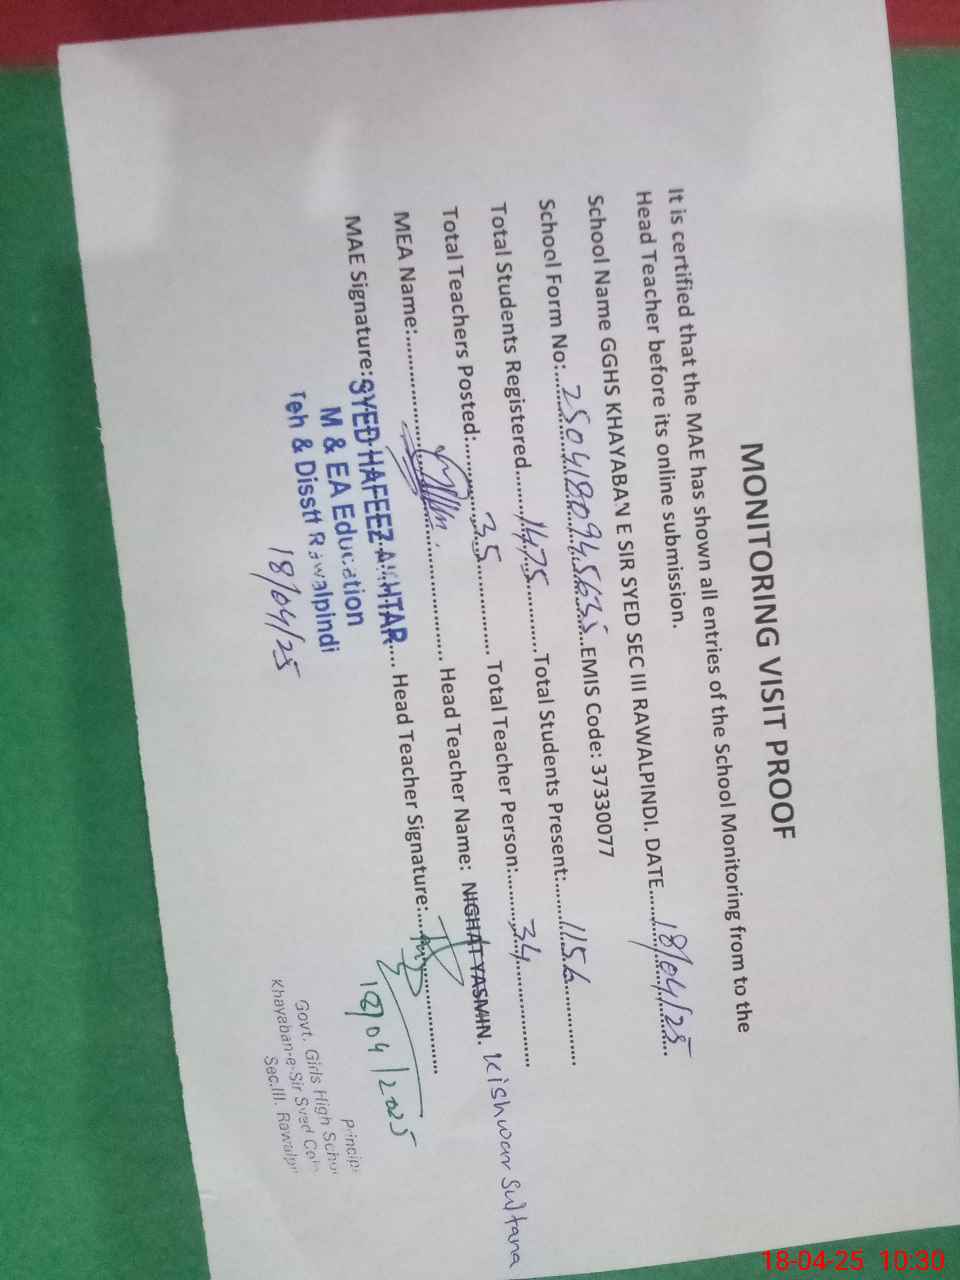 MONITORING VISIT PROOF
It is certified that the MAE has shown all entries of the School Monitoring from to the
Head Teacher before its online submission.
School Name GGHS KHAYABAN E SIR SYED SEC III RAWALPINDI. DATE......18/04/25......
School Form No:......2504180945635......EMIS Code: 37330077
Total Students Registered......1475......Total Students Present:......1156......
Total Teachers Posted:......35...... Total Teacher Person:......34......
MEA Name:...... Head Teacher Name: NIGHAT YASMIN. Kishwar Sultana
MAE Signature: SYED HAFEEZ AKHTAR.... Head Teacher Signature:......
M & EA Education
Teh & Disstt Rawalpindi
18/04/25
18/04/2025
Govt. Girls High
Khayaban-e-Sir Syed
Sec.III.
18-04-25 10:30